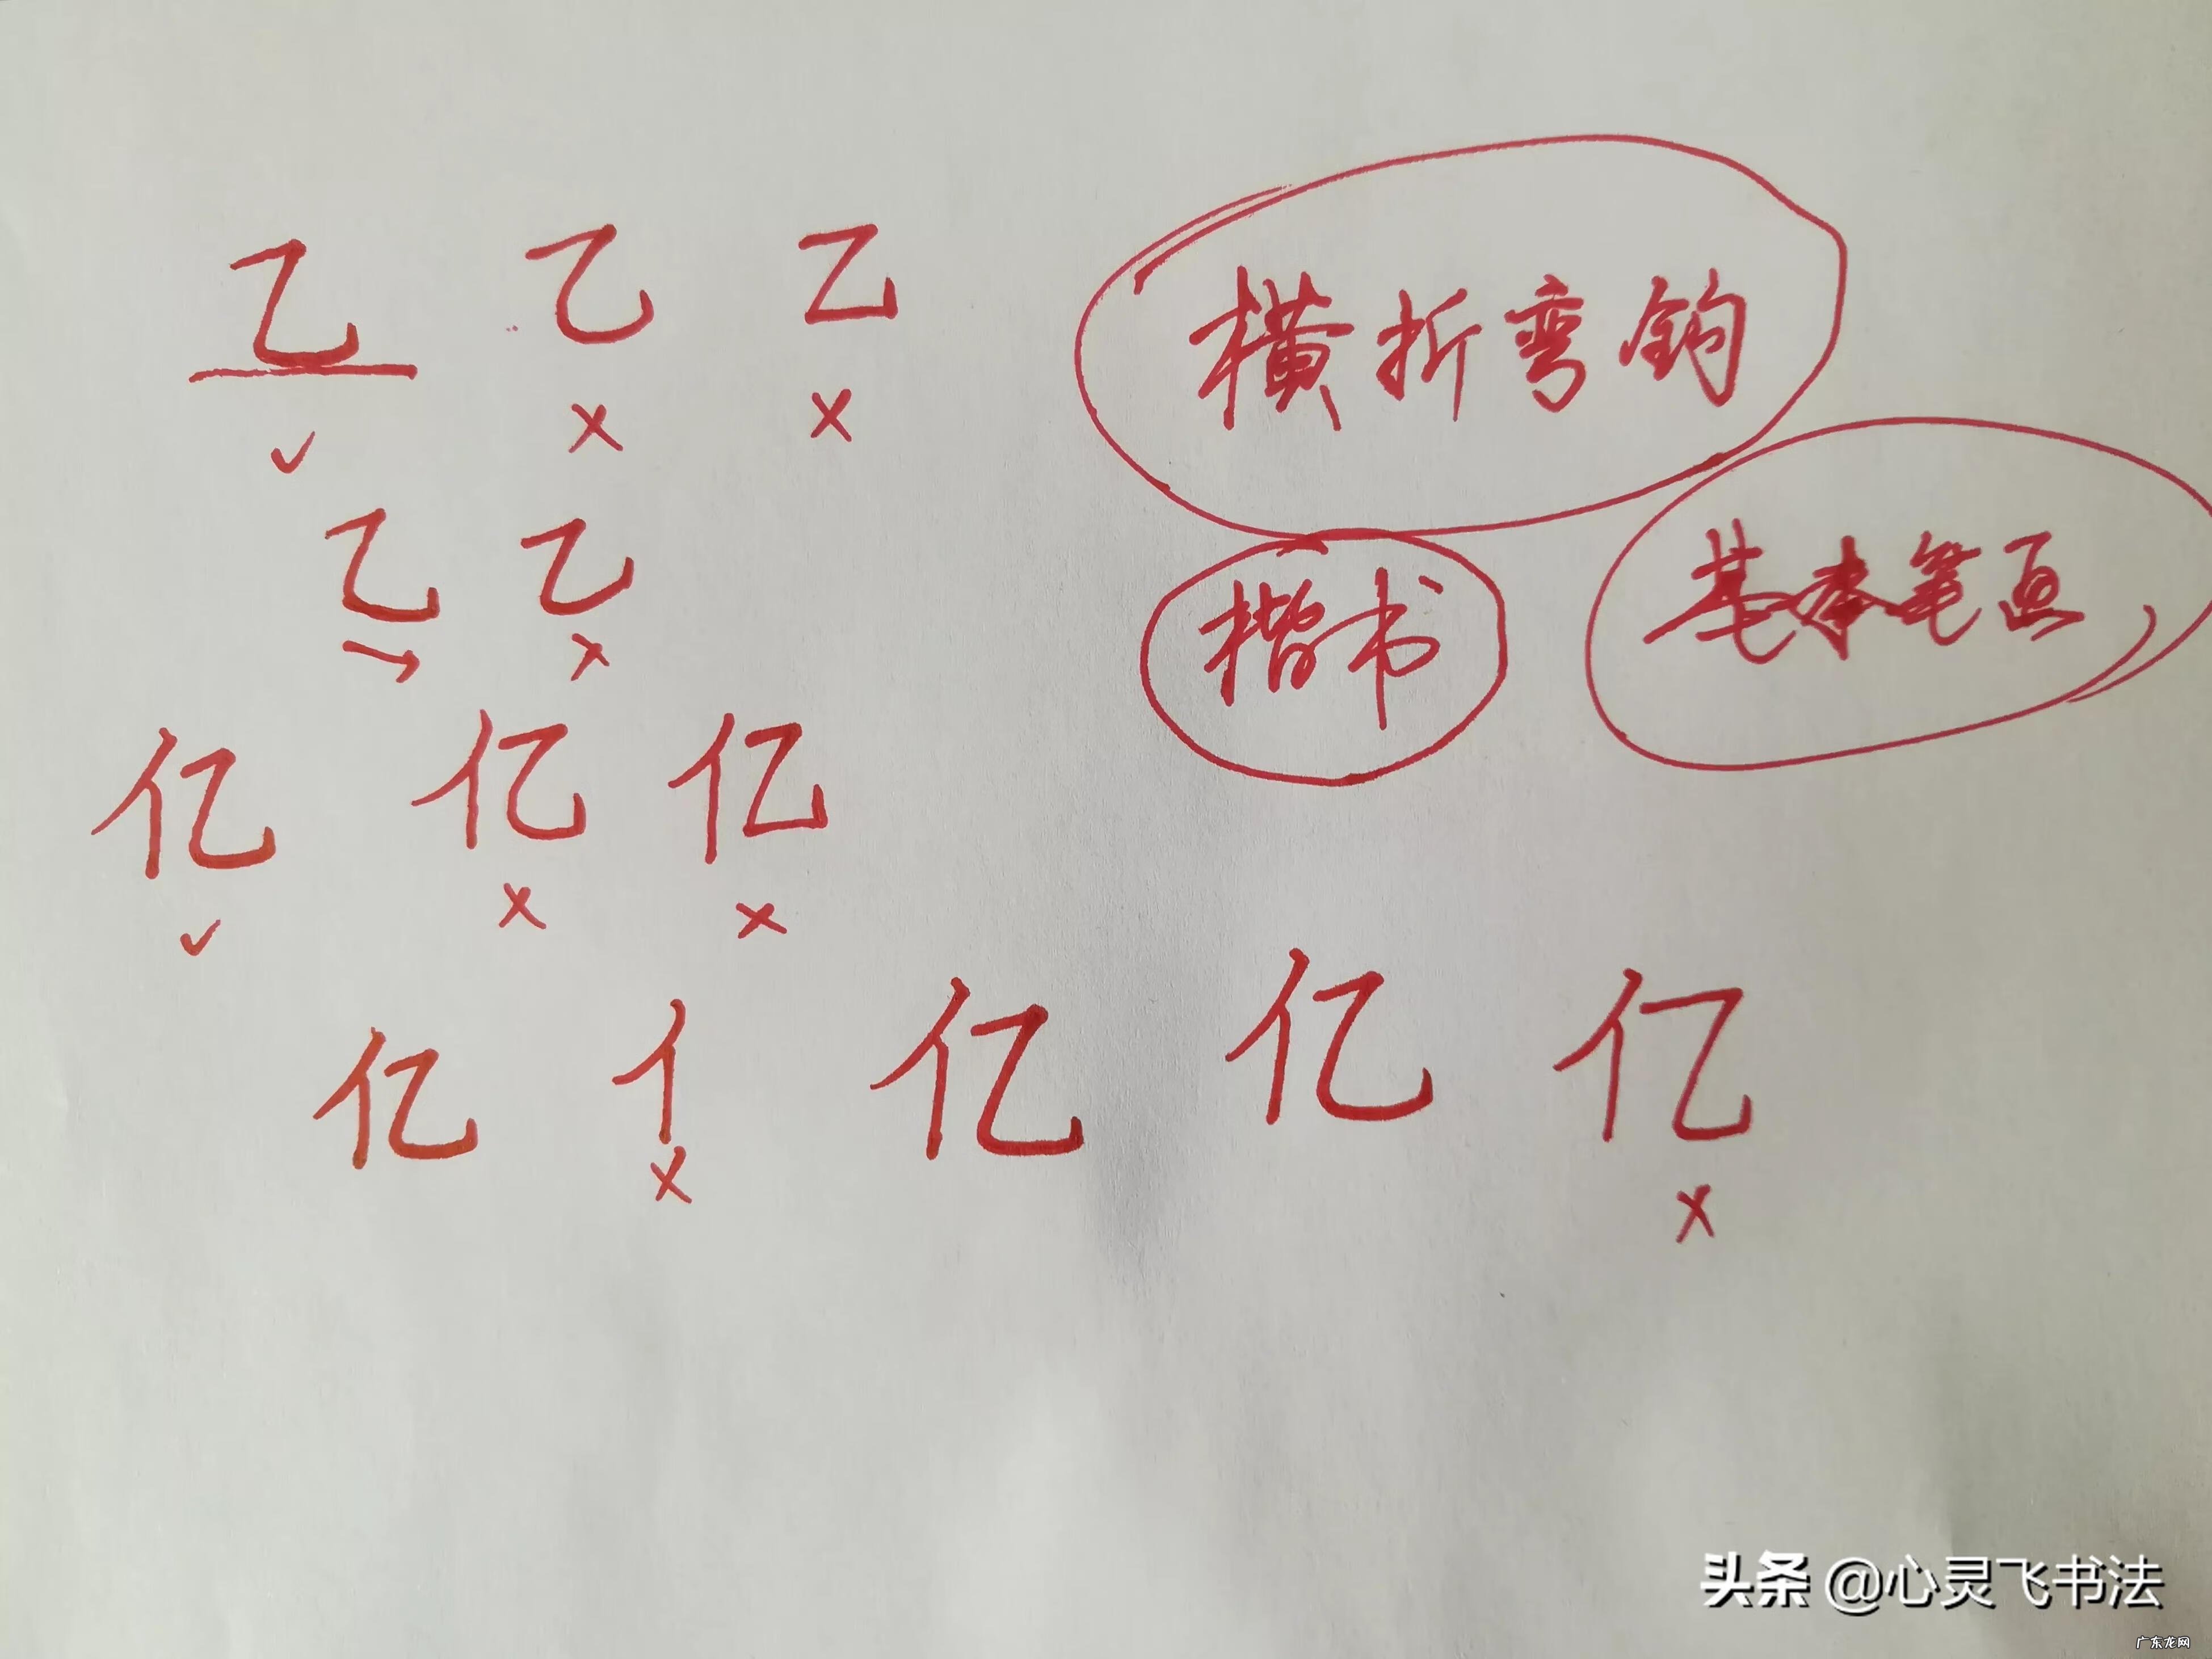 乙 乙 乙
✓ × ×
横折弯钩
乙 乙
→ ×
楷书
基本笔画
亿 亿 亿
✓ × ×
亿 亻 亿 亿 亿
× ×
头条 @心灵飞书法
广东龙网